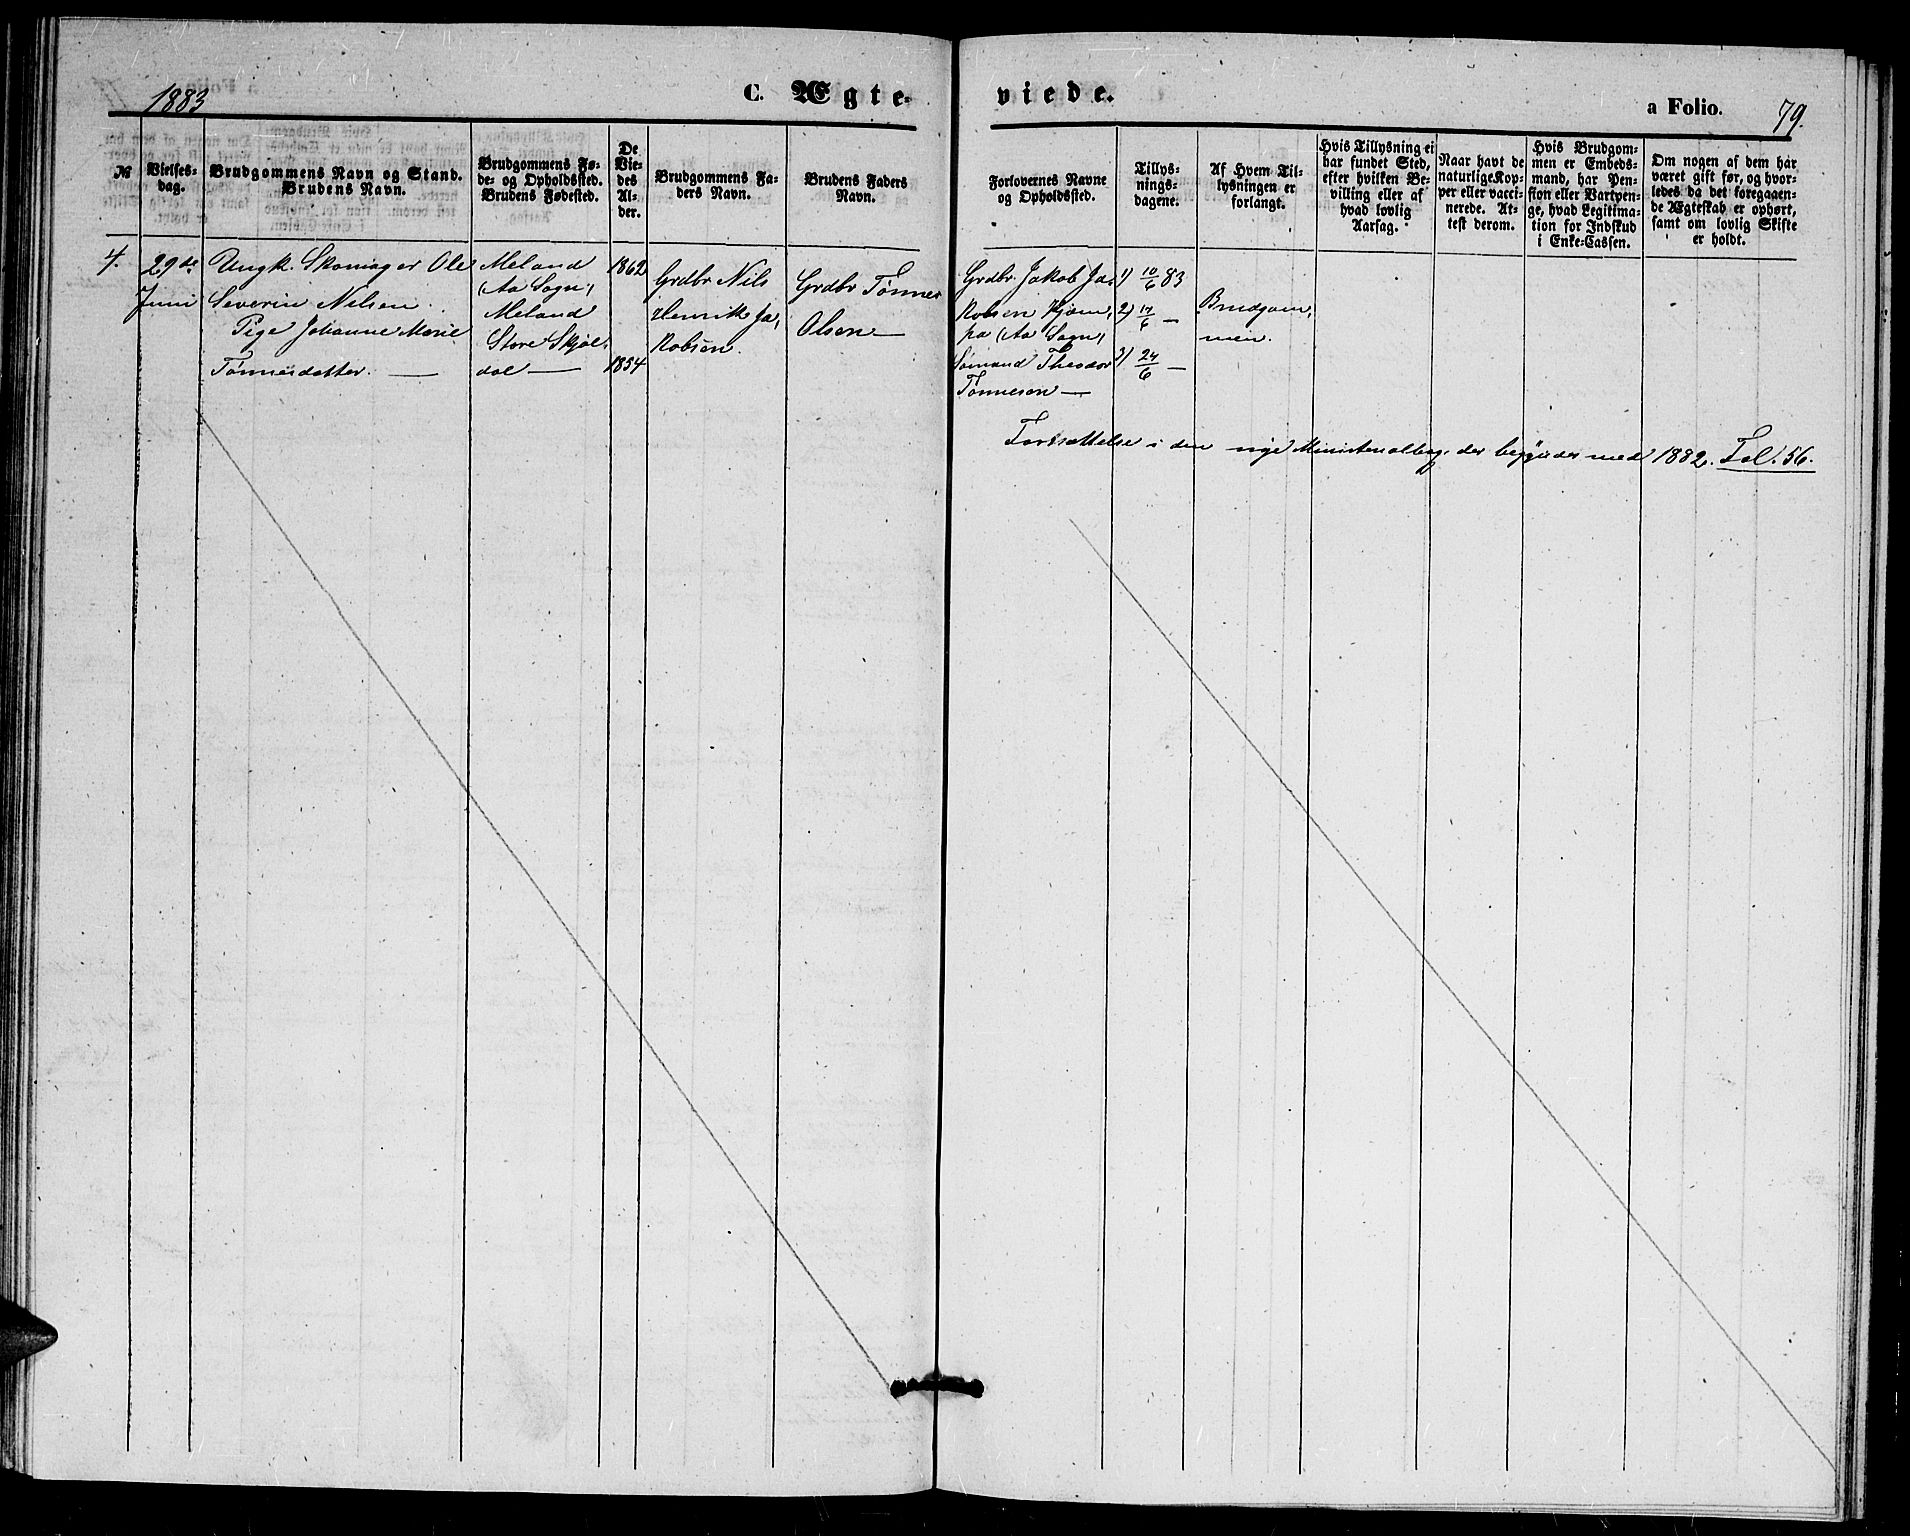 1883
C. Ægte-
viede.
a Folio.
79.
№
Vielses-
dag.
Brudgommens Navn og Stand.
Brudens Navn.
Brudgommens Fø-
de- og Opholdssted.
Brudens Fødested.
De
Vie-
des
Al-
der.
Brudgommens Fa-
ders Navn.
Brudens Faders
Navn.
Forlovernes Navne
og Opholdssted.
Tillys-
nings-
dagene.
Af Hvem Til-
lysningen er
forlangt.
Hvis Tillysning ei
har fundet Sted,
efter hvilken Be-
villing eller af
hvad lovlig
Aarsag.
Naar havt de
naturlige Kop-
per eller vacci-
nerede. At-
test derom.
Hvis Brudgom-
men er Embeds-
mand, har Pen-
sion eller Vartpen-
ge, hvad Legitima-
tion for Indskud
i Enke-Cassen.
Om nogen af dem har
været gift før, og hvor-
ledes da det foregaaen-
de Ægteskab er ophørt,
samt om lovlig Skifte
er holdt.
4.
29de
Juni
Ungk. Skomager Ole
Severin Nilsen.
Pige Johanne Marie
Tønnesdatter. —
Meland
(Aa Sogn)
Meland
Store Skjøl-
dal —
1862
1854
Grdbr Nils
Henrik Ja-
kobsen.
Grdbr Tønnes
Olsen —
Grdbr. Jakob Ja-
kobsen
(Aa Sogn)
Sømand Theodor
Tønnesen —
1) 10/6 83
2) 17/6 —
3) 24/6 —
Brudgom-
men.
Fortsættelse i den nye Ministerialbog, der begynder med 1882. Fol. 56.